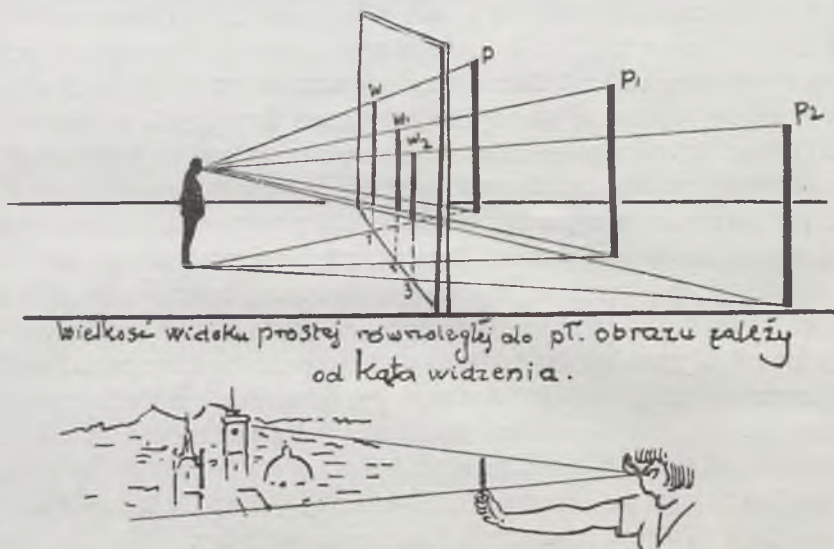 P
P1
P2
W
W1
W2
1
2
3
Wielkość widoku prostej równoległej do pł. obrazu zależy
od kąta widzenia.